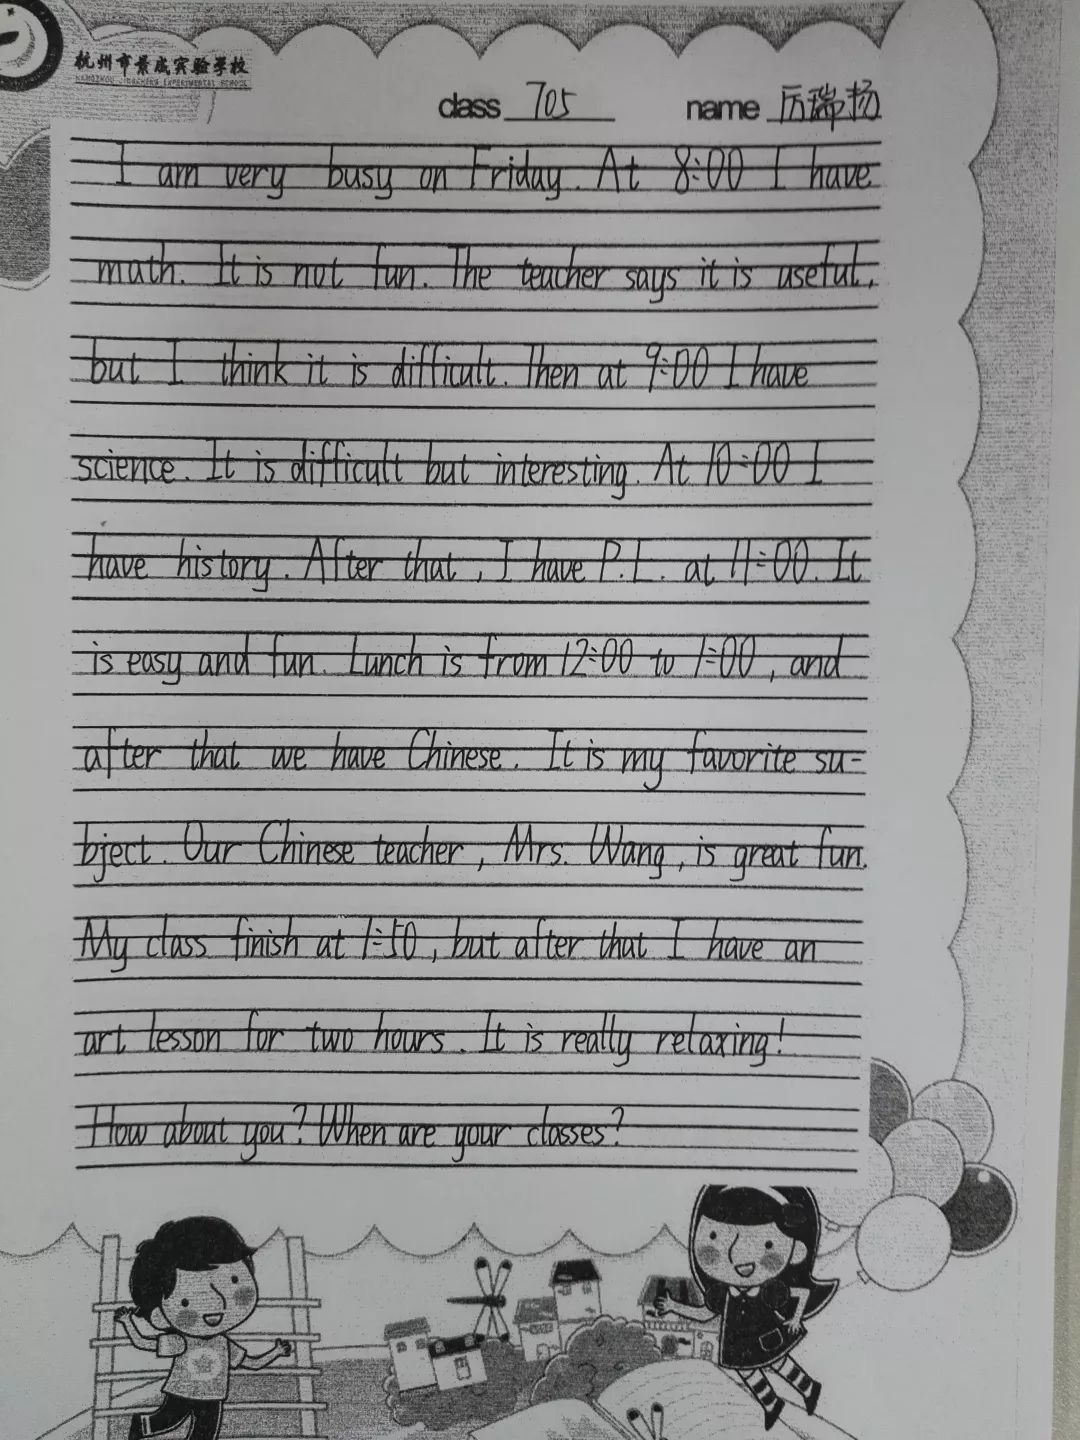 杭州市景成实验学校
HANGZHOU JINGCHENG EXPERIMENTAL SCHOOL
class 705 name 厉瑞扬
I am very busy on Friday. At 8:00 I have
math. It is not fun. The teacher says it is useful,
but I think it is difficult. Then at 9:00 I have
science. It is difficult but interesting. At 10:00 I
have history. After that, I have P.E. at 11:00. It
is easy and fun. Lunch is from 12:00 to 1:00, and
after that we have Chinese. It is my favorite su-
bject. Our Chinese teacher, Mrs. Wang, is great fun.
My class finish at 1:50, but after that I have an
art lesson for two hours. It is really relaxing!
How about you? When are your classes?